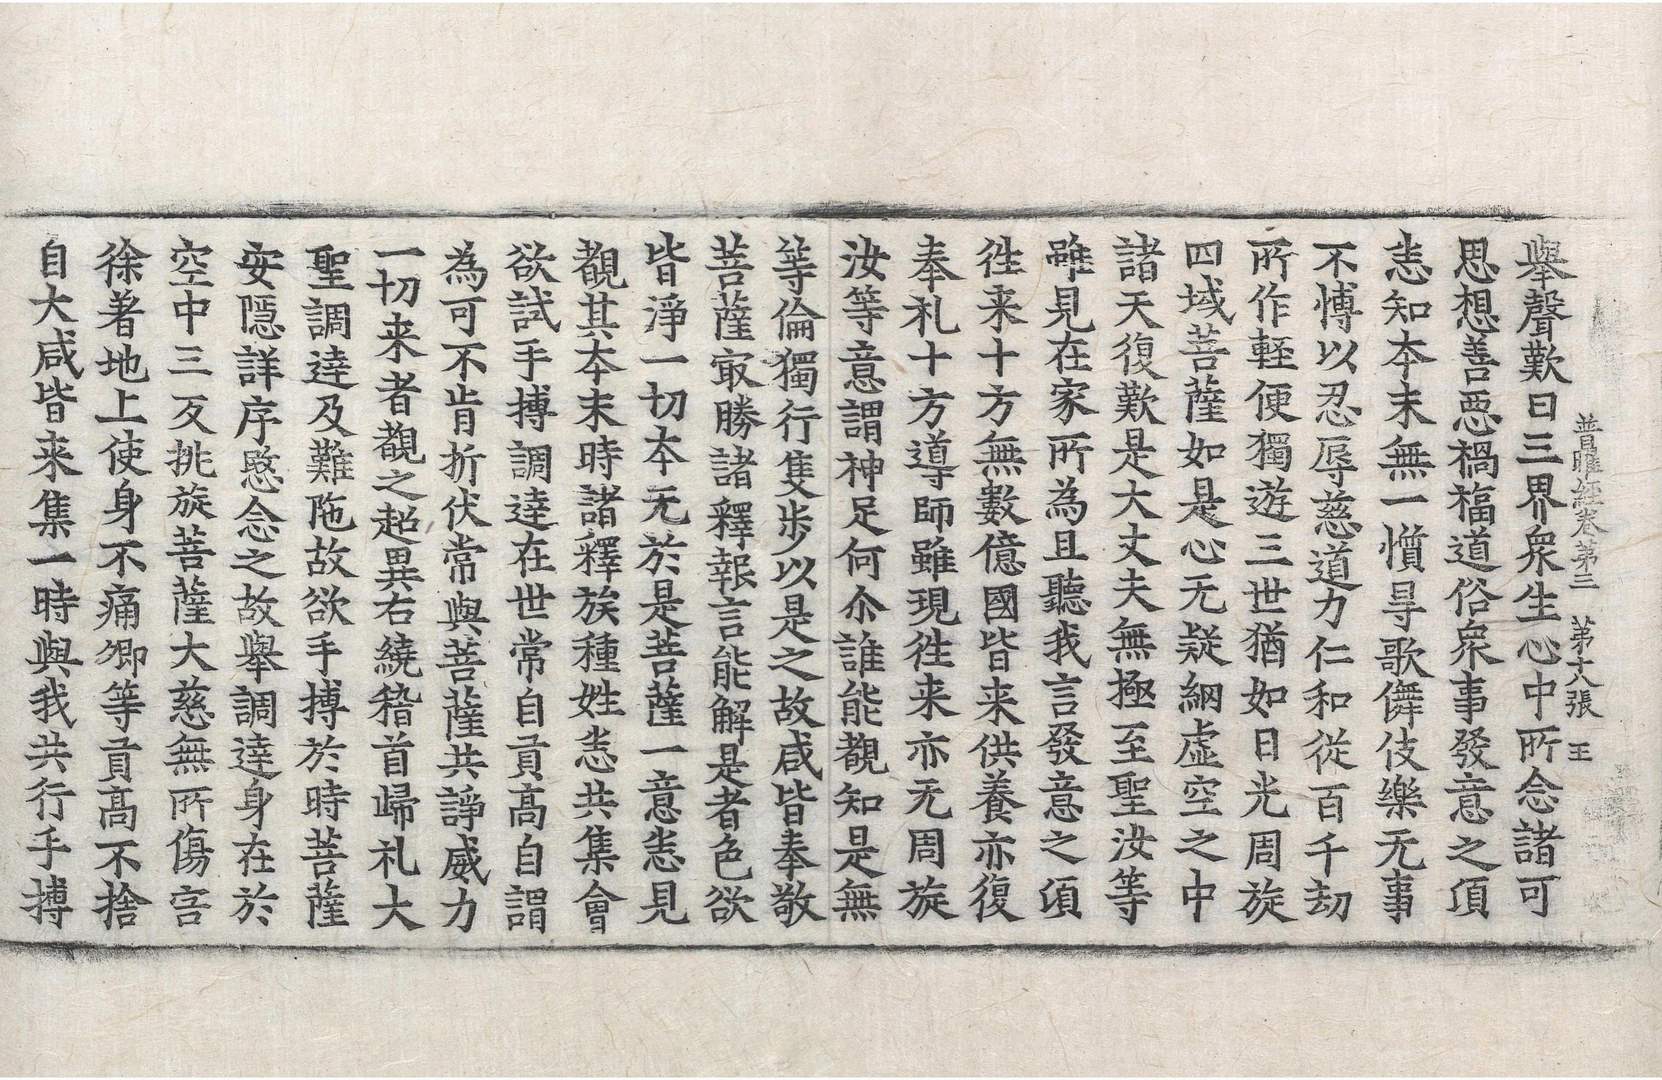 普曜經卷第三 第十六張 王
舉聲歎曰三界衆生心中所念諸可
思想善惡禍福道俗衆事發意之須
悉知夲末無一憒㝵歌儛伎樂无事
不愽以忍辱慈道力仁和從百千劫
所作輕便獨遊三世猶如日光周旋
四域菩薩如是心无疑網虛空之中
諸天復歎是大丈夫無極至聖汝等
雖見在家所為且聽我言發意之須
徃来十方無數億國皆来供養亦復
奉礼十方導師雖現徃来亦无周旋
汝等意謂神足何尒誰能觀知是無
等倫獨行隻步以是之故咸皆奉敬
菩薩㝡勝諸釋報言能解是者色欲
皆淨一切夲无於是菩薩一意悉見
觀其夲末時諸釋族種姓悉共集會
欲試手搏調達在世常自貢高自謂
為可不肯折伏常與菩薩共諍威力
一切来者觀之超異右繞稽首歸礼大
聖調達及難陁故欲手搏於時菩薩
安隱詳序愍念之故舉調達身在於
空中三反挑旋菩薩大慈無所傷害
徐著地上使身不痛卿等貢高不捨
自大咸皆来集一時與我共行手搏